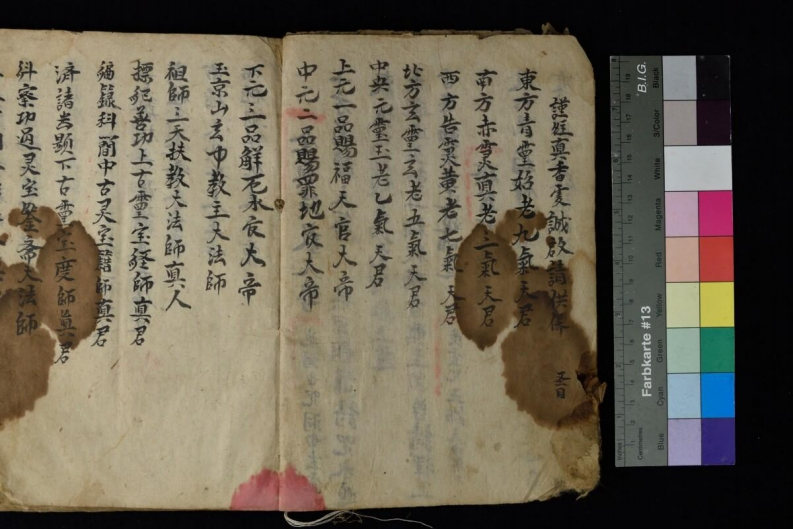 謹炷真香虔誠啟請供養
東方青靈始老九氣天君
南方赤灵真老三氣天君
西方告灵黄老七氣天君
北方玄靈玄老五氣天君
中央元靈玉老乙氣天君
上元一品賜福天官大帝
中元二品赦罪地官大帝
下元三品解厄水官大帝
玉京山玄中教主大法師
祖師三天扶教大法師真人
功上古靈宝経師真君
科簡中古灵宝籍師真君
濟諸类題下古靈宝度師真君
糾察功過灵宝監斋大法師
B.I.G.
Farbkarte #13
Black
3/Color
White
Magenta
Red
Yellow
Green
Cyan
Blue
Centimetres
Inches